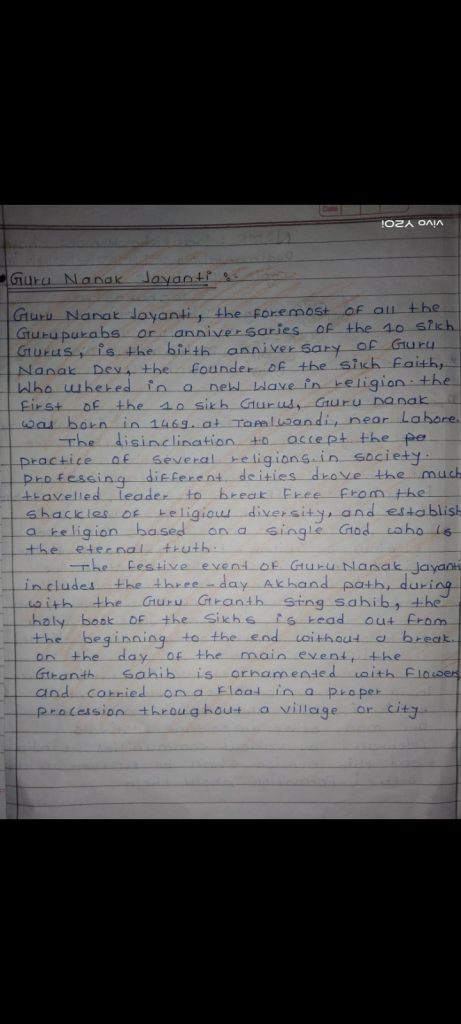 Date
vivo Y20i
Guru Nanak Jayanti :-
Guru Nanak Jayanti, the foremost of all the
Gurupurabs or anniversaries of the 10 sikh
Gurus, is the birth anniversary of Guru
Nanak Dev, the founder of the sikh Faith,
Who uthered in a new wave in religion. the
First of the 10 sikh Gurus, Guru nanak
was born in 1469. at Talwandi, near Lahore.
The disinclination to accept the
practice of several religions in society.
professing different deities drove the much
travelled leader to break Free from the
shackles of religious diversity, and establish
a religion based on a single God who is
the eternal truth.
The festive event of Guru Nanak Jayanti
includes the three-day Akhand path, during
with the Guru Granth sing sahib, the
holy book OF the Sikhs is read out from
the beginning to the end without a break.
on the day of the main event, the
Granth Sahib is ornamented with Flowers
and carried on a Float in a proper
procession throughout a village or city.